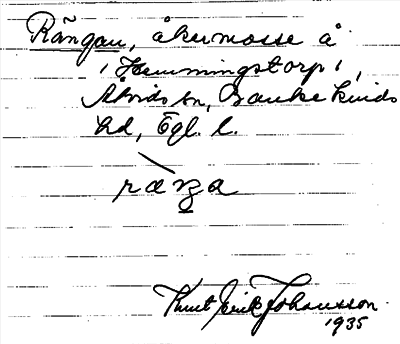 Rängan, åkermosse å
'Hemmingstorp',
Åtvids sn, Bankekinds
hd, Ögl. l.
Knut Erik Johansson
1935